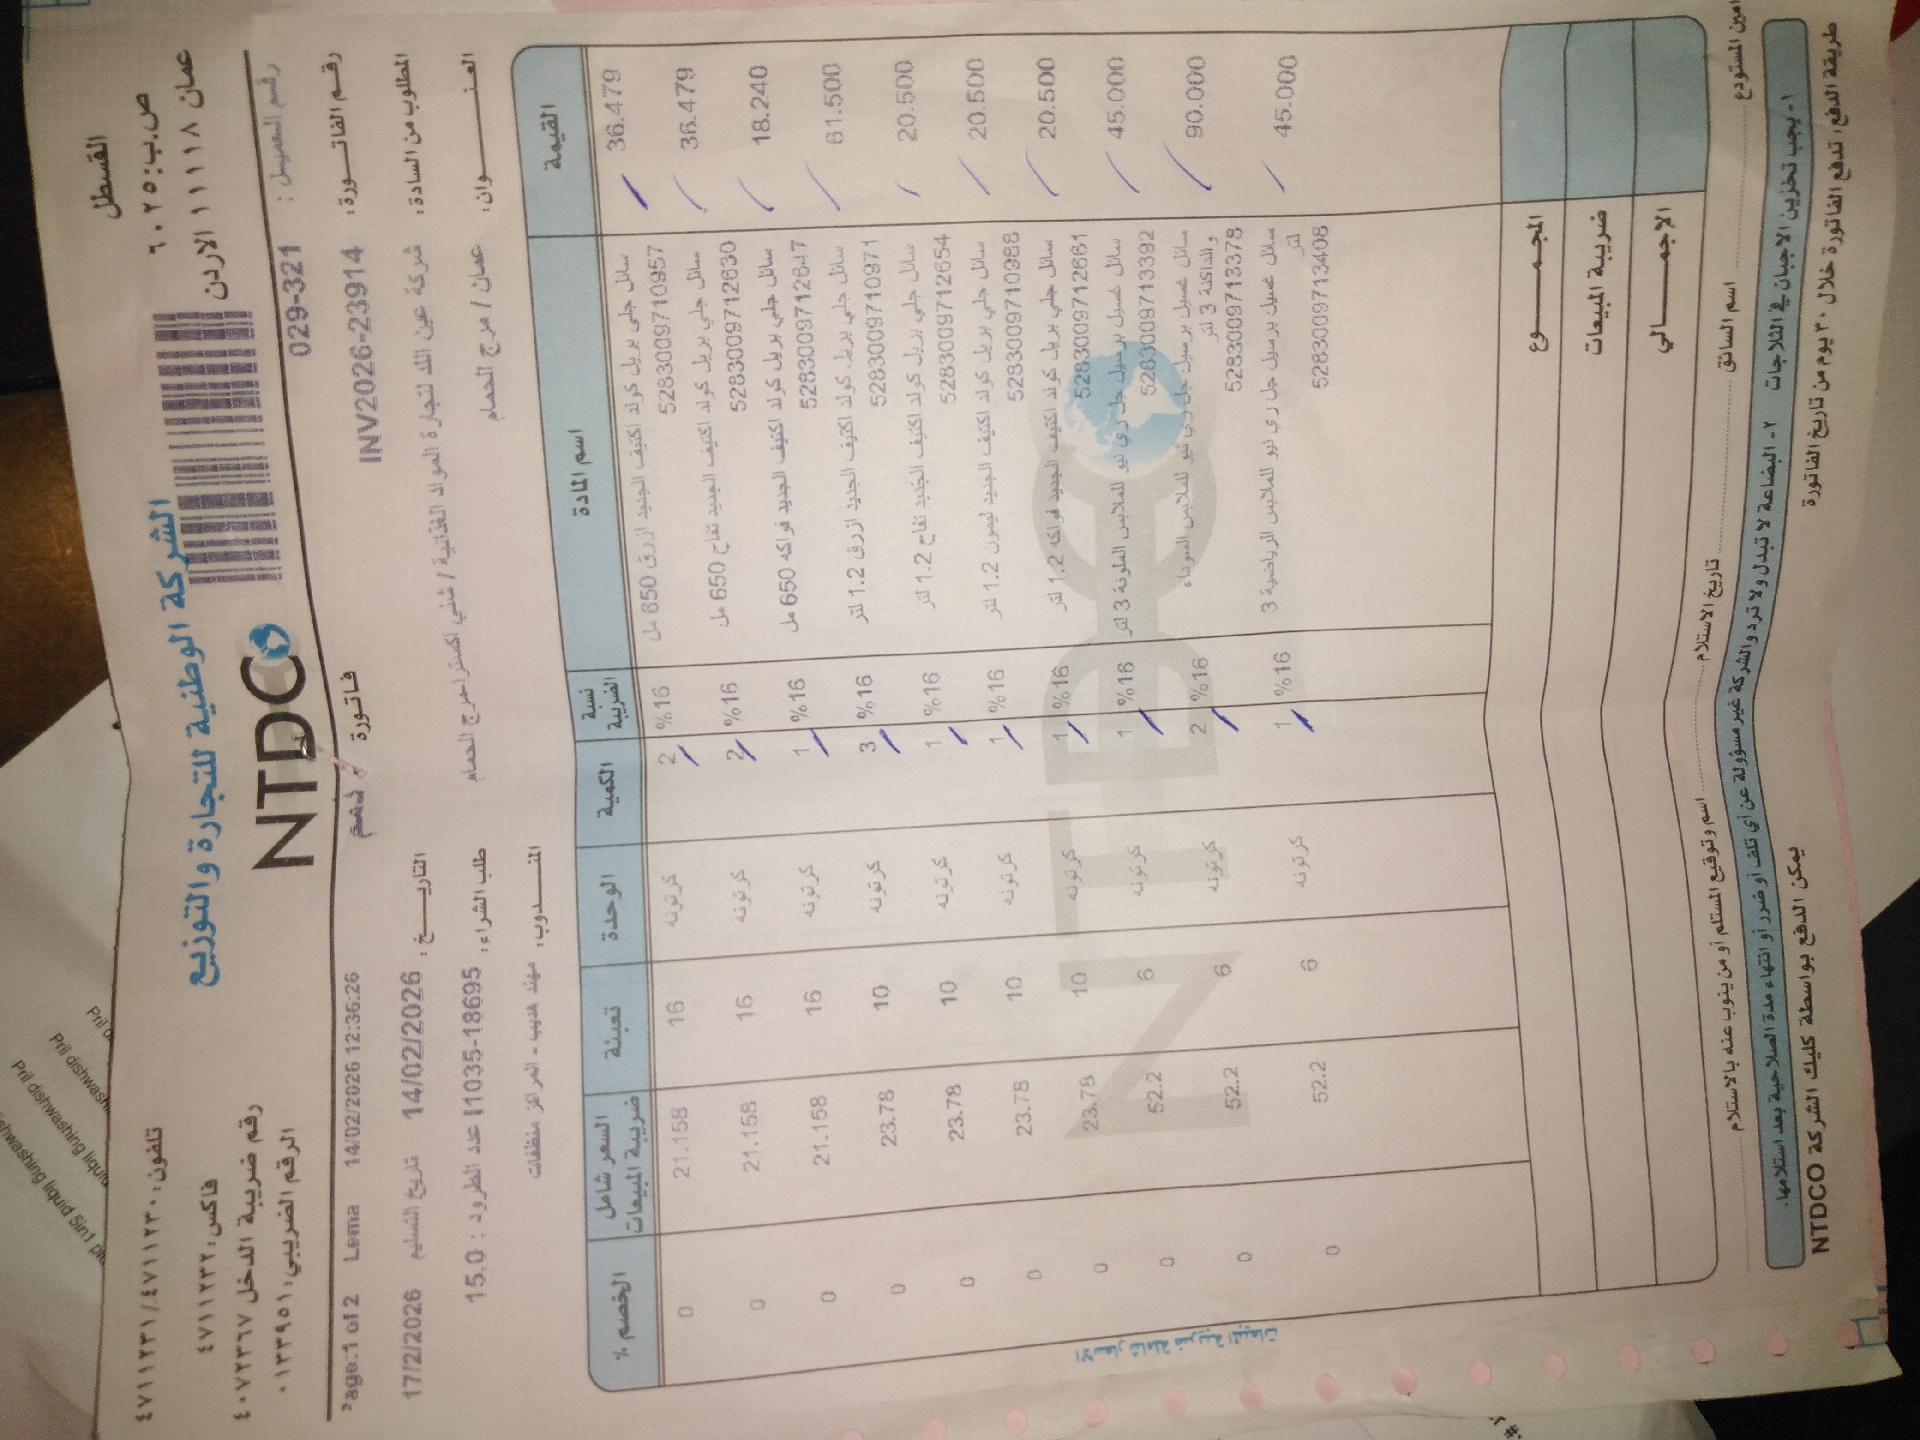 القسطل
ص.ب: ٦٠٢٥
عمان ١١١١٨ الاردن
الشركة الوطنية للتجارة والتوزيع
NTDCO
تلفون: ٤٧١١٢٣١/٤٧١١٢٣٠
فاكس: ٤٧١١٢٣٢
رقم ضريبة الدخل ٤٠٧٢٣٦٧
الرقم الضريبي: ٠١٣٣٩٥١
رقم العميل : 029-321
فاتورة
Page:1 of 2 Lema 14/02/2026 12:36:26
رقم الفاتورة: INV2026-23914
المطلوب من السادة: شركة عين الله لتجارة المواد الغذائية / شلبي اكسترا مرج الحمام
التاريخ: 14/02/2026 تاريخ التسليم 17/2/2026
العنوان: عمان / مرج الحمام
طلب الشراء: I1035-18695 عدد الطرود : 15.0
المندوب: مهند هديب - المراكز منظفات
القيمة اسم المادة نسبة الضريبة الكمية الوحدة تعبئة السعر شامل ضريبة المبيعات الخصم %
36.479 سائل جلي بريل كولد اكتيف الجديد ازرق 650 مل %16 2 كرتونه 16 21.158 0
5283009710957
36.479 سائل جلي بريل كولد اكتيف الجديد تفاح 650 مل %16 2 كرتونه 16 21.158 0
5283009712630
18.240 سائل جلي بريل كولد اكتيف الجديد فواكه 650 مل %16 1 كرتونه 16 21.158 0
5283009712647
61.500 سائل جلي بريل كولد اكتيف الجديد ازرق 1.2 لتر %16 3 كرتونه 10 23.78 0
5283009710971
20.500 سائل جلي بريل كولد اكتيف الجديد تفاح 1.2 لتر %16 1 كرتونه 10 23.78 0
5283009712654
20.500 سائل جلي بريل كولد اكتيف الجديد ليمون 1.2 لتر %16 1 كرتونه 10 23.78 0
5283009710988
20.500 سائل جلي بريل كولد اكتيف الجديد فواكه 1.2 لتر %16 1 كرتونه 10 23.78 0
5283009712661
45.000 سائل غسيل برسيل جل ري نيو للملابس الملونة 3 لتر %16 1 كرتونه 6 52.2 0
5283009713392
90.000 سائل غسيل برسيل جل ري نيو للملابس السوداء %16 2 كرتونه 6 52.2 0
والداكنة 3 لتر
5283009713378
45.000 سائل غسيل برسيل جل ري نيو للملابس الرياضية 3 %16 1 كرتونه 6 52.2 0
لتر
5283009713408
NTDCO
المجموع
ضريبة المبيعات
الاجمالي
الاسعار شاملة ضريبة المبيعات
امين المستودع اسم السائق تاريخ الاستلام اسم وتوقيع المستلم أو من ينوب عنه بالاستلام
١- يجب تخزين الاجبان في الثلاجات ٢- البضاعة لا تبدل ولا ترد والشركة غير مسؤولة عن أي تلف أو ضرر أو انتهاء مدة الصلاحية بعد استلامها.
طريقة الدفع: تدفع الفاتورة خلال ٣٠ يوم من تاريخ الفاتورة
يمكن الدفع بواسطة كليك الشركة NTDCO
Pril dishwash
Pril dishwashing liquid
shwashing liquid 5in1